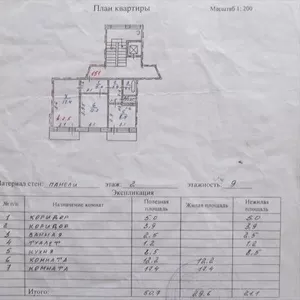 План квартиры
Масштаб 1: 200
Материал стен: панели этаж 2 этажность 9
Экспликация
Назначение комнат Полезная площадь Жилая площадь Нежилая площадь
1 КОРИДОР 5.0 5.0
2 КОРИДОР 3.9 3.9
3 ВАННАЯ 2.5 2.5
4 ТУАЛЕТ 1.2 1.2
5 КУХНЯ 8.5 8.5
6 КОМНАТА 12.2 12.2
7 КОМНАТА 17.4 17.4
Итого: 50.7 29.6 21.1